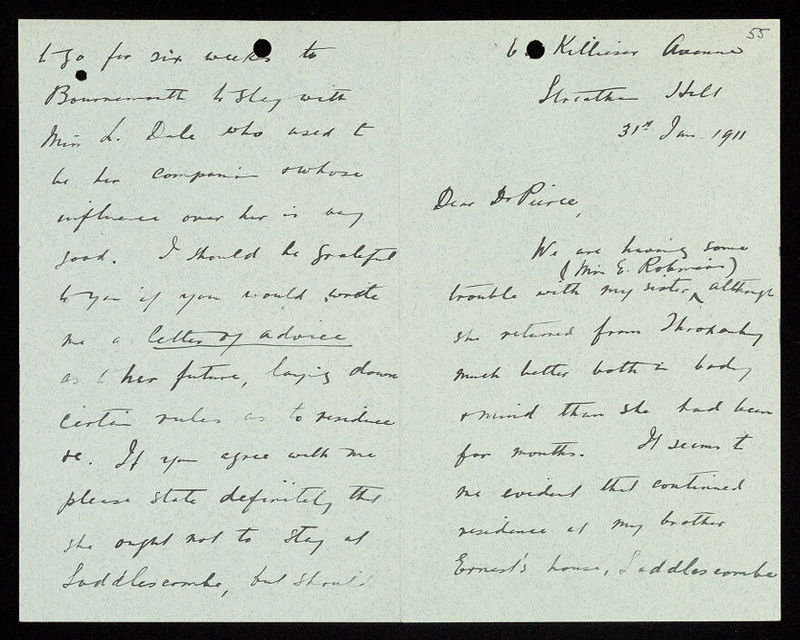 55
6 Killieser Avenue
Streatham Hill
31st Jan. 1911
Dear Dr Pierce,
We are having some
(Miss E. Robinson)
trouble with my sister, although
she returned from Throxenby
much better both in body
& mind than she had been
for months. It seems to
me evident that continued
residence at my brother
Ernest's house, Saddlescombe
to go for six weeks to
Bournemouth to stay with
Miss L. Dale who used to
be her companion & whose
influence over her is very
good. I should be grateful
to you if you would wrote
me a letter of advice
as to her future, laying down
certain rules as to residence
&c. If you agree with me
please state definitely that
she ought not to stay at
Saddlescombe, but should